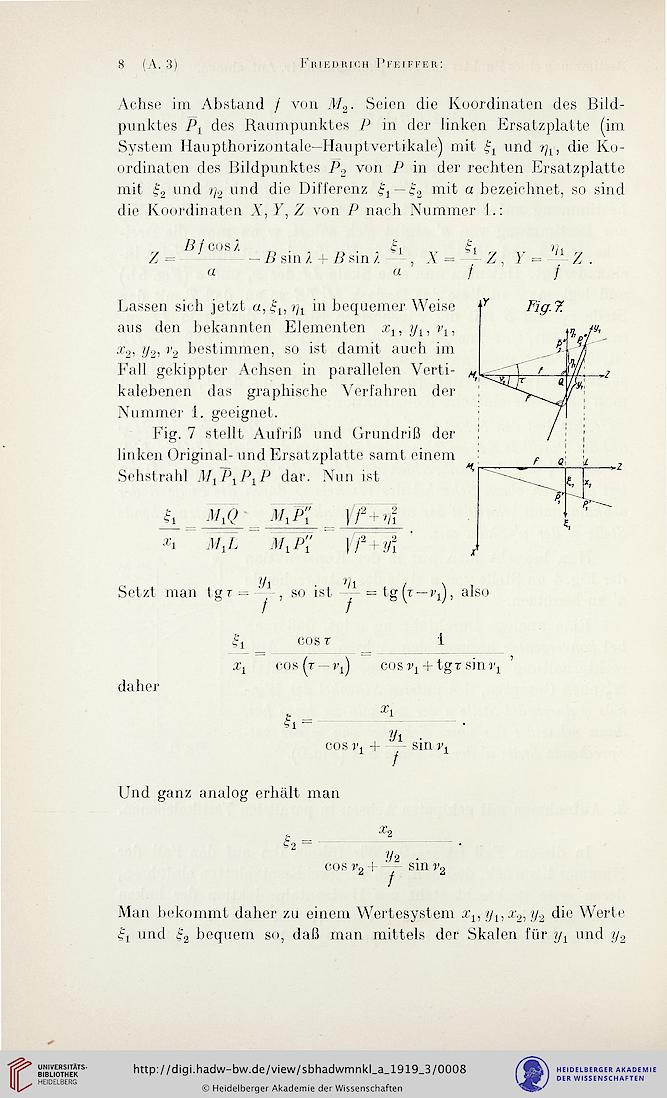 8 (A. 3) Friedrich Pfeiffer:
Achse im Abstand f von M₂. Seien die Koordinaten des Bild-
punktes P̅₁ des Raumpunktes P in der linken Ersatzplatte (im
System Haupthorizontale–Hauptvertikale) mit ξ₁ und η₁, die Ko-
ordinaten des Bildpunktes P̅₂ von P in der rechten Ersatzplatte
mit ξ₂ und η₂ und die Differenz ξ₁ — ξ₂ mit a bezeichnet, so sind
die Koordinaten X, Y, Z von P nach Nummer 1.:
Z = B f cos λ / a — B sin λ + B sin λ ξ₁ / a , X = ξ₁ / f Z , Y = η₁ / f Z .
Lassen sich jetzt a, ξ₁, η₁ in bequemer Weise
aus den bekannten Elementen x₁, y₁, ν₁,
x₂, y₂, ν₂ bestimmen, so ist damit auch im
Fall gekippter Achsen in parallelen Verti-
kalebenen das graphische Verfahren der
Nummer 1. geeignet.
Fig. 7 stellt Aufriß und Grundriß der
linken Original- und Ersatzplatte samt einem
Sehstrahl M₁P̅₁P₁P dar. Nun ist
Fig. 7.
Y
η₁
y₁
M₁
ν₁
τ
f
Q
Z
f
M₁
f
Q
L
Z
ξ₁
x₁
ξ₁
X
ξ₁ / x₁ = M₁Q / M₁L = M₁P̅₁″ / M₁P₁″ = √f² + η₁² / √f² + y₁² .
Setzt man tg τ = y₁ / f , so ist η₁ / f = tg (τ — ν₁), also
ξ₁ / x₁ = cos τ / cos (τ — ν₁) = 1 / cos ν₁ + tg τ sin ν₁ ,
daher
ξ₁ = x₁ / cos ν₁ + y₁ / f sin ν₁ .
Und ganz analog erhält man
ξ₂ = x₂ / cos ν₂ + y₂ / f sin ν₂ .
Man bekommt daher zu einem Wertesystem x₁, y₁, x₂, y₂ die Werte
ξ₁ und ξ₂ bequem so, daß man mittels der Skalen für y₁ und y₂
UNIVERSITÄTS-
BIBLIOTHEK
HEIDELBERG
http://digi.hadw-bw.de/view/sbhadwmnkl_a_1919_3/0008
© Heidelberger Akademie der Wissenschaften
HEIDELBERGER AKADEMIE
DER WISSENSCHAFTEN